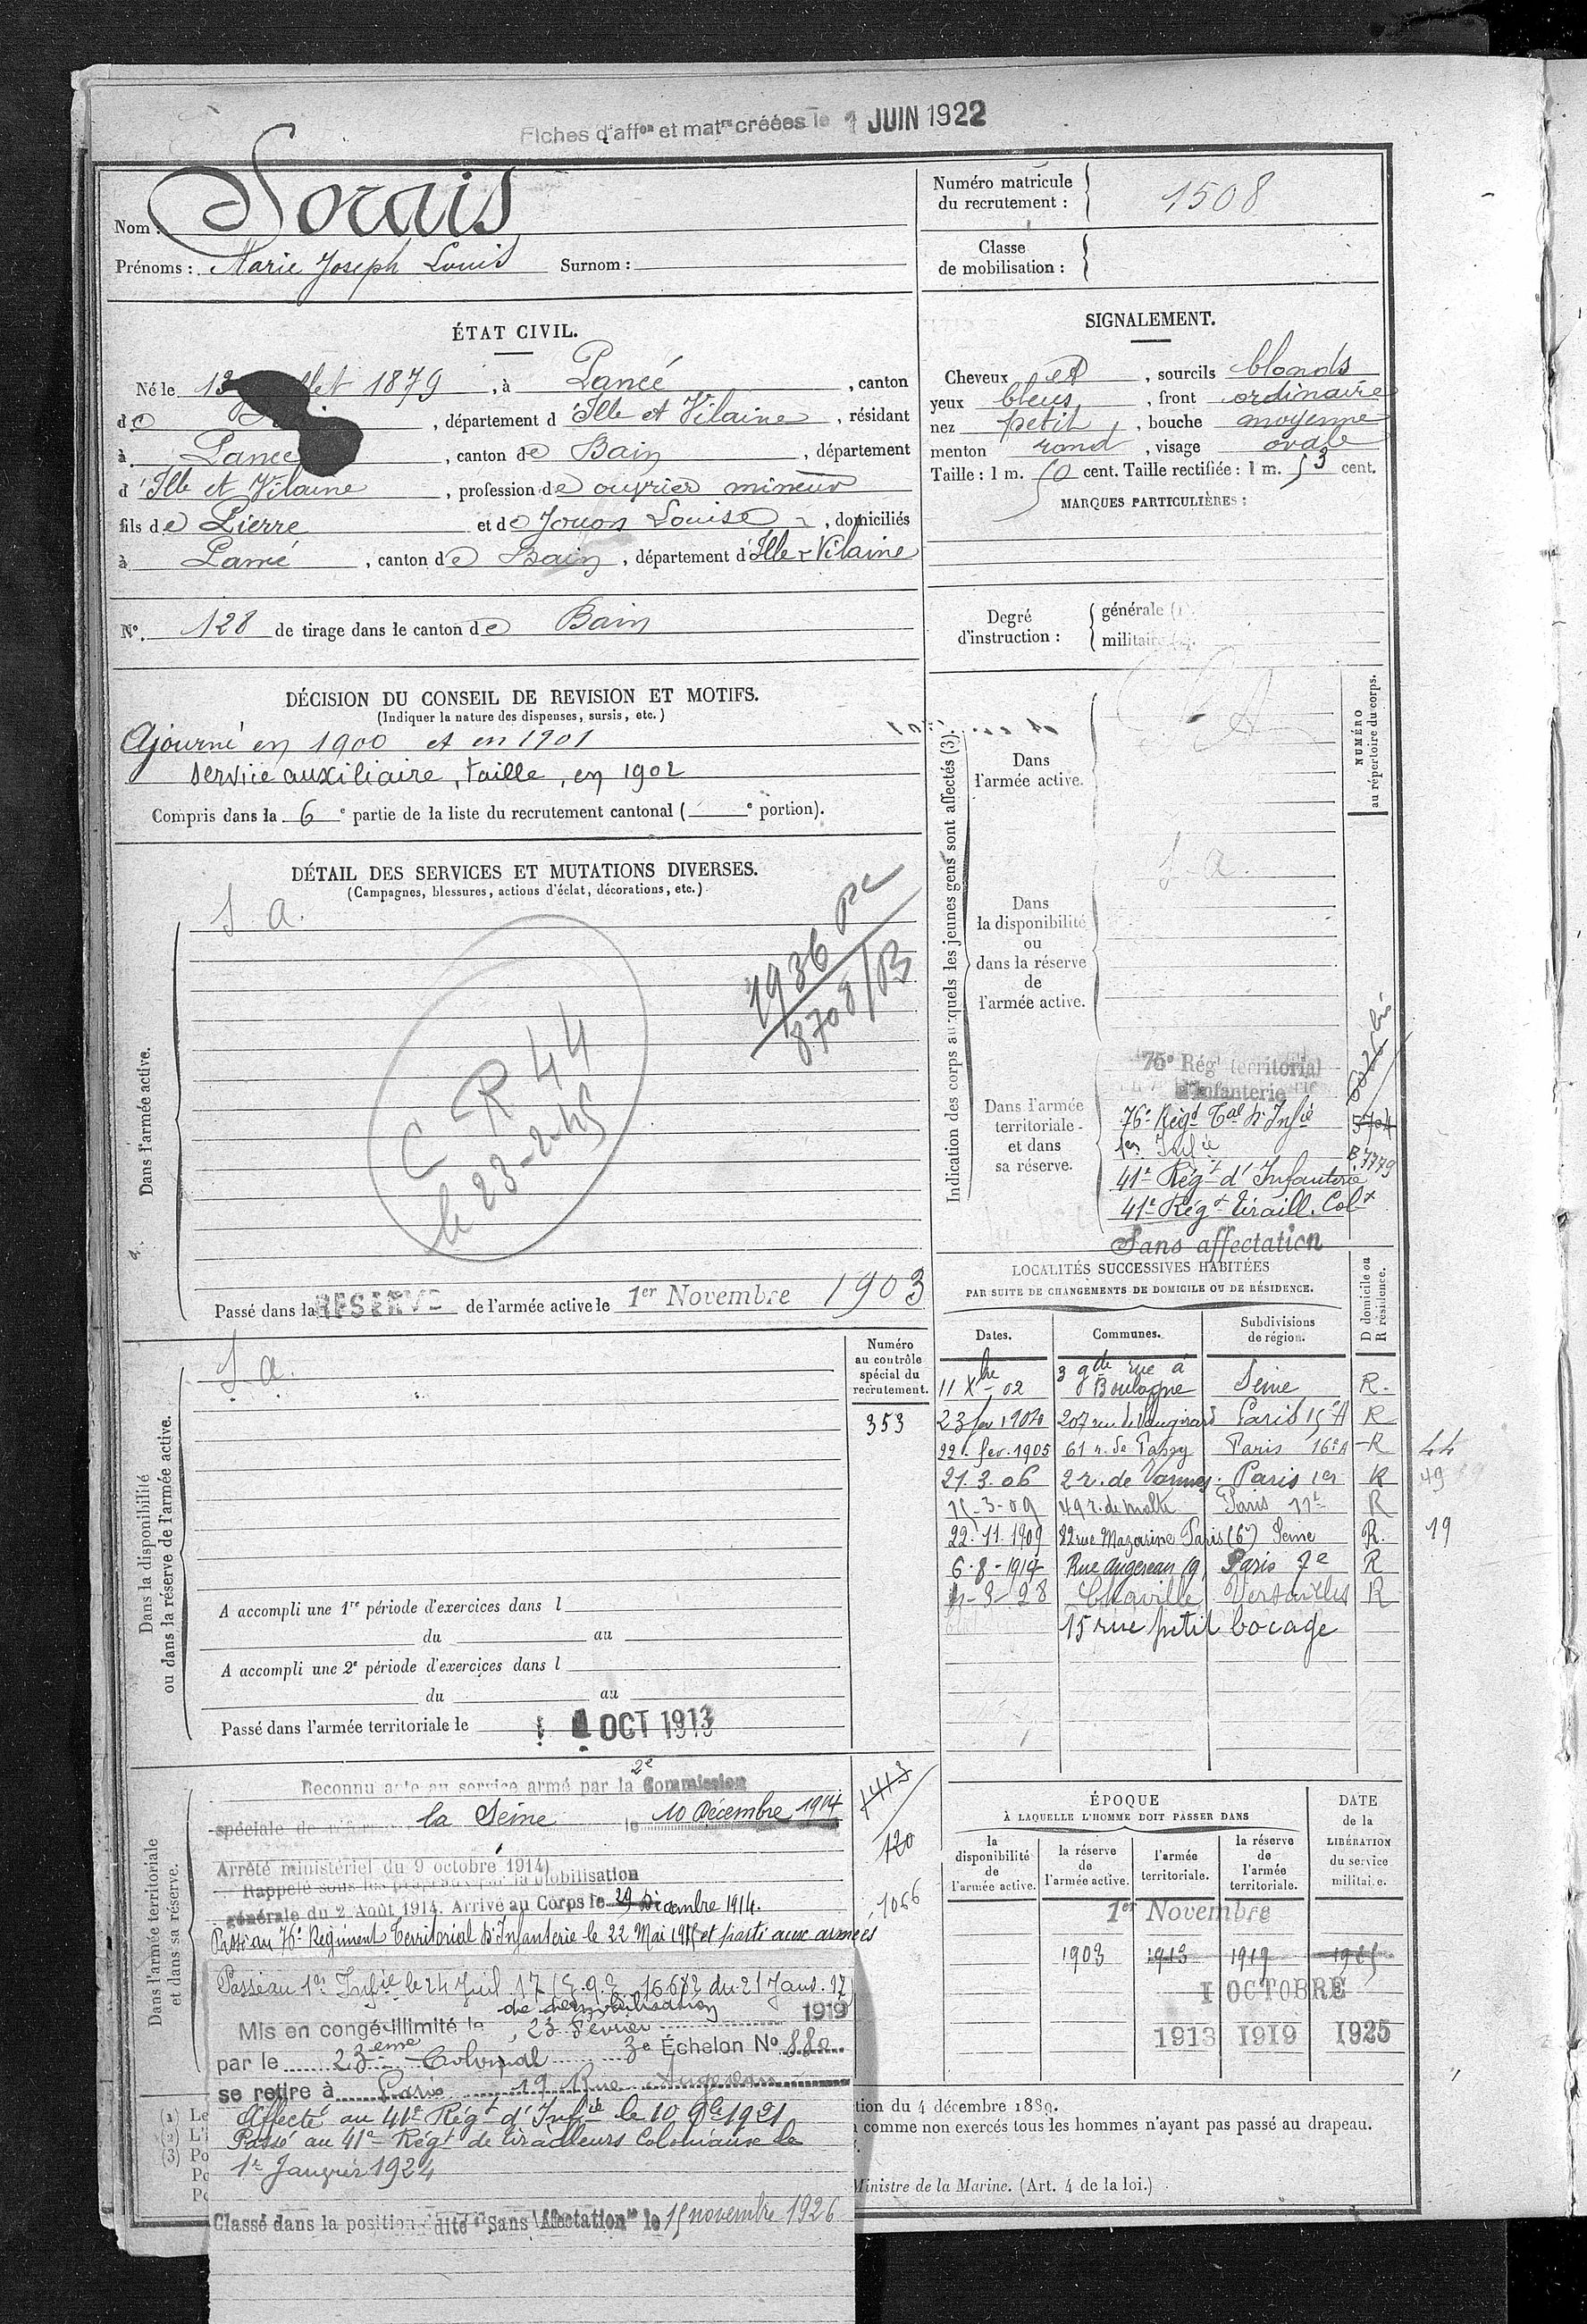 Fiches d'affon et matre créées le 1 JUIN 1922
Nom : Sorais
Prénoms : Marie Joseph Louis Surnom :
Numéro matricule du recrutement : 1508
Classe de mobilisation :
ÉTAT CIVIL.
Né le 13 llet 1879, à Pancé, canton
de , département d'Ille et Vilaine, résidant
à Pancé, canton de Bain, département
d'Ille et Vilaine, profession de ouvrier mineur
fils de Pierre et de Jouon Louise, domiciliés
à Pancé, canton de Bain, département d'Ille & Vilaine
N°. 128 de tirage dans le canton de Bain
SIGNALEMENT.
Cheveux et, sourcils blonds
yeux bleus, front ordinaire
nez petit, bouche moyenne
menton rond, visage ovale
Taille : 1 m. 50 cent. Taille rectifiée : 1 m. 53 cent.
MARQUES PARTICULIÈRES :
Degré d'instruction : générale (1).
militaire (2).
DÉCISION DU CONSEIL DE REVISION ET MOTIFS.
(Indiquer la nature des dispenses, sursis, etc.)
Ajourné en 1900 et en 1901
service auxiliaire, taille, en 1902
Compris dans la 6e partie de la liste du recrutement cantonal ( e portion).
DÉTAIL DES SERVICES ET MUTATIONS DIVERSES.
(Campagnes, blessures, actions d'éclat, décorations, etc.)
Dans l'armée active.
S. a.
1936 pc
8708/B
C R 44
le 23-2-45
Passé dans la RESERVE de l'armée active le 1er Novembre 1903
Indication des corps auxquels les jeunes gens sont affectés (3).
NUMÉRO au répertoire du corps.
Dans l'armée active.
Dans la disponibilité ou dans la réserve de l'armée active.
S. a.
Dans l'armée territoriale et dans sa réserve.
75e Régt territorial
d'Infanterie
76e Régt Tal d'Infie 5704
1er Infie B 7779
41e Régt d'Infanterie
41e Régt Tiraill. Colx
Sans affectation
LOCALITÉS SUCCESSIVES HABITÉES
PAR SUITE DE CHANGEMENTS DE DOMICILE OU DE RÉSIDENCE.
Dates. Communes. Subdivisions de région. D domicile ou R résidence.
11 Xbre 02 3 gde rue à Boulogne Seine R.
207 rue de Vaugirard Paris 15e A R
22 fev. 1905 61 r. de Passy Paris 16e A R 44
21.3.06 2 r. de Vannes Paris 1er R 49
15-3-09 49 r. de malte Paris 11e R
22.11.1909 82 rue Mazarine Paris (6e) Seine R. 19
6-8-1914 Rue Augereau 19 Paris 7e R
Chaville Versailles R
15 rue petit bocage
Dans la disponibilité ou dans la réserve de l'armée active.
S. a.
Numéro au contrôle spécial du recrutement.
353
A accompli une 1re période d'exercices dans l
du au
A accompli une 2e période d'exercices dans l
du au
Passé dans l'armée territoriale le 1 OCT 1913
Dans l'armée territoriale et dans sa réserve.
Reconnu apte au service armé par la 2e Commission
spéciale de la Seine le 10 Décembre 1914
Arrêté ministériel du 9 octobre 1914)
Rappelé sous les drapeaux par la mobilisation
générale du 2 Août 1914. Arrivé au Corps le 29 Décembre 1914.
Passé au 76e Régiment Territorial d'Infanterie le 22 Mai 1915 et parti aux armées
1413
120
1066
Passé au 1er Infie le 24 Juil. 17 (E.q.E. 16.682 du 21 Janv. 17)
de démobilisation
Mis en congé illimité le 23 Février 1919
par le 23eme Colonial 3e Échelon No 880
se retire à Paris 19 Rue Augereau
Affecté au 41e Régt d'Infie le 10 9bre 1921
Passé au 41e Régt de tirailleurs Coloniaux le
1er Janvier 1924
Classé dans la position dite "Sans Affectation" le 15 novembre 1926
ÉPOQUE
À LAQUELLE L'HOMME DOIT PASSER DANS
la disponibilité de l'armée active. la réserve de l'armée active. l'armée territoriale. la réserve de l'armée territoriale.
DATE de la LIBÉRATION du service militaire.
1er Novembre
1903 1913 1919 1925
1 OCTOBRE
1913 1919 1925
(1) Le
(2) L'i
(3) Po
Po
Po
tion du 4 décembre 1889.
comme non exercés tous les hommes n'ayant pas passé au drapeau.
Ministre de la Marine. (Art. 4 de la loi.)